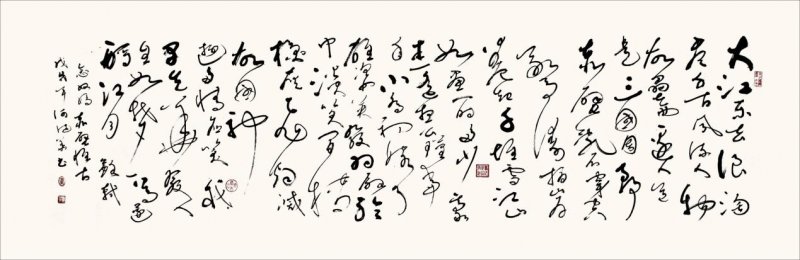 大江东去浪淘
尽千古风流人物
故垒西边人道
是三国周郎
赤壁乱石穿空
惊涛拍岸
卷起千堆雪江山
如画一时多少豪
杰遥想公瑾当
年小乔初嫁了
雄姿英发羽扇纶
巾谈笑间樯
橹灰飞烟灭
故国神
游多情应笑我
早生华发人
生如梦一尊还
酹江月 苏轼
念奴娇 赤壁怀古
戊戌年 书